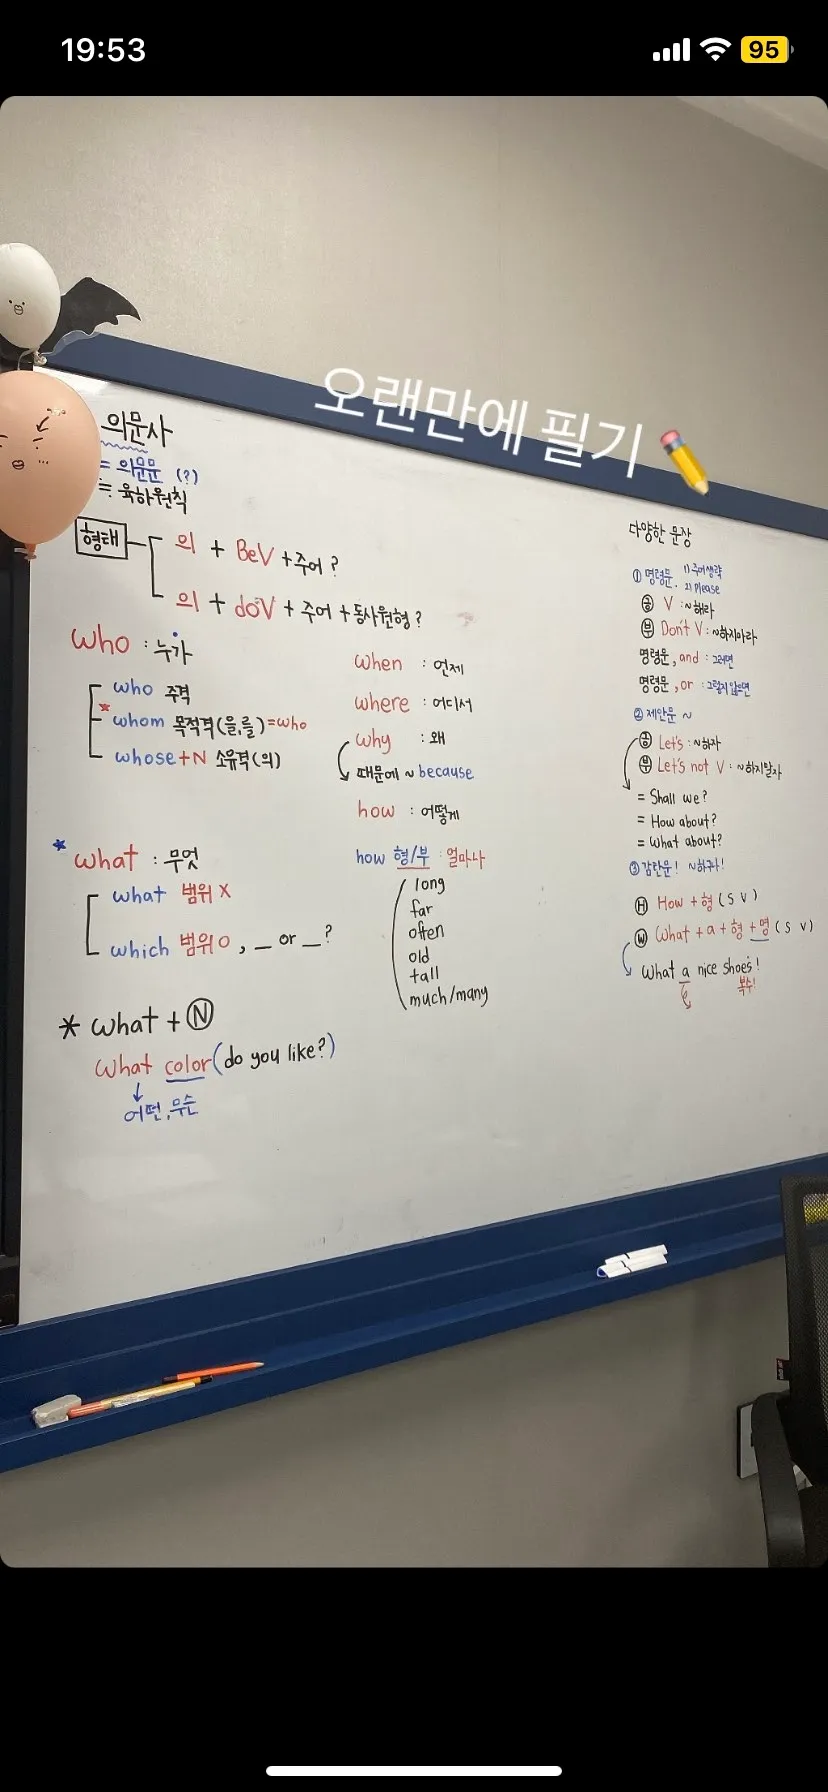 19:53
95
오랜만에 필기
의문사
= 의문문 (?)
= 육하원칙
형태
의 + BeV + 주어 ?
의 + doV + 주어 + 동사원형 ?
who : 누가
who 주격
* whom 목적격(을,를)=who
whose+N 소유격(의)
* what : 무엇
what 범위 X
which 범위 O , _ or _ ?
* what + N
what color (do you like?)
↓
어떤, 무슨
when : 언제
where : 어디서
why : 왜
때문에 ~ because
how : 어떻게
how 형/부 : 얼마나
long
far
often
old
tall
much/many
다양한 문장
① 명령문. 1) 주어생략
2) please
긍 V : ~해라
부 Don't V : ~하지마라
명령문, and : 그러면
명령문, or : 그렇지 않으면
② 제안문 ~
긍 Let's : ~하자
부 Let's not V : ~하지말자
= Shall we?
= How about?
= What about?
③ 감탄문! ~하구나!
H How + 형 (S V)
W What + a + 형 + 명 (S V)
What a nice shoes!
복수!